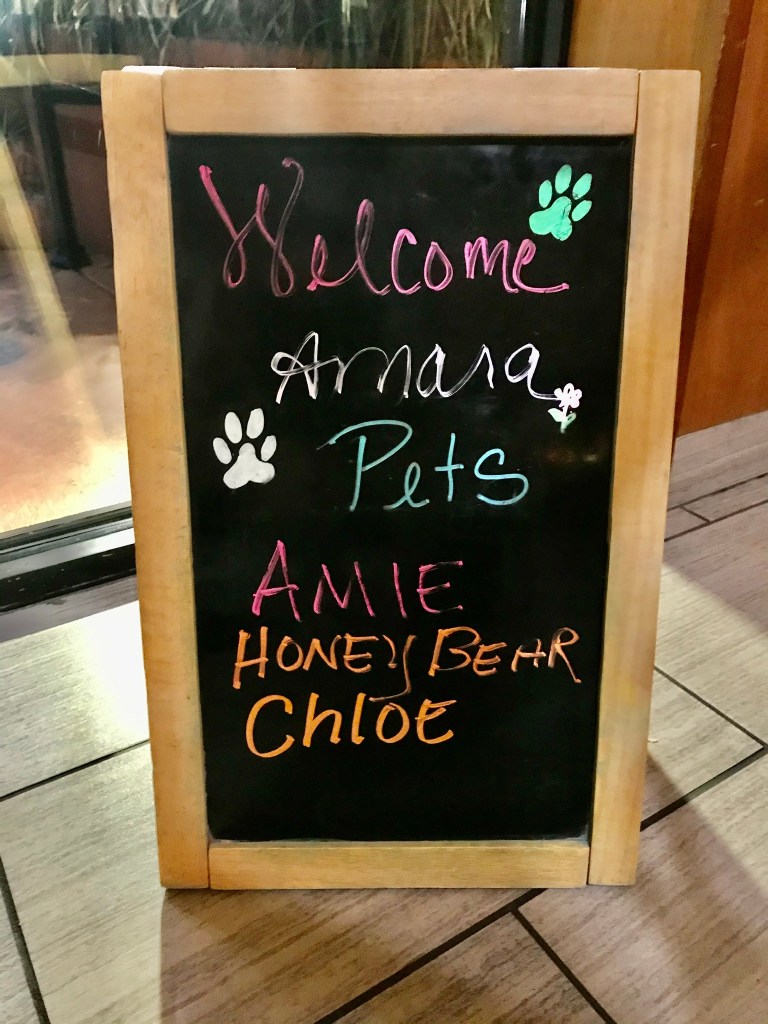 Welcome
Amara
Pets
AMIE
HONEY BEAR
Chloe